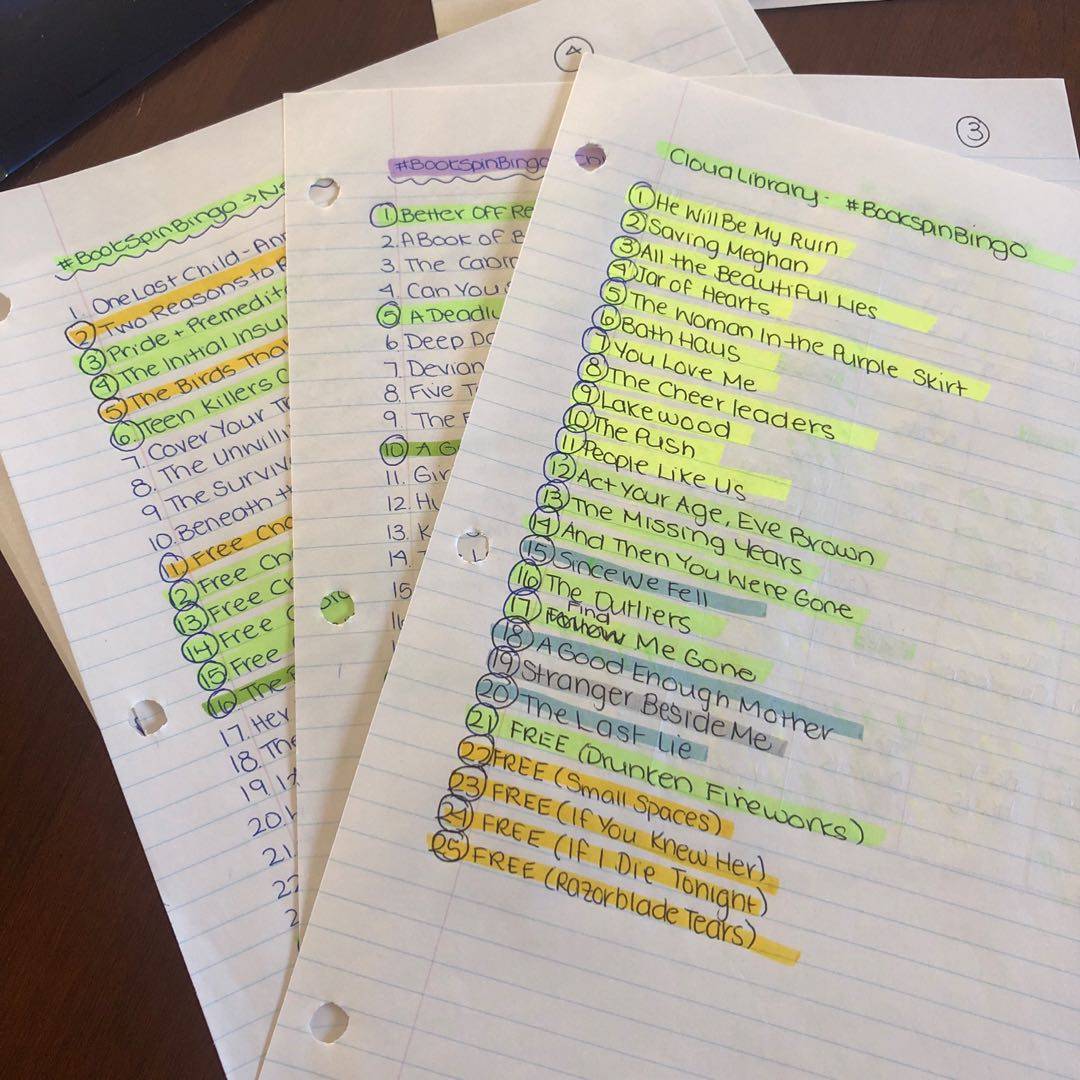 #BookSpinBingo →
1. One Last Child -
2 Two Reasons to
3 Pride +
4 The Initial
5 The Birds
6. Teen Killers
7. Cover Your
8. The
9 The
10. Beneath
11 Free
12 Free
13 Free
14 Free
15 Free
16 The
17. Her
18. The
19.
20.
21.
22
2
4
#BookSpinBingo
1 Better Off
2. A Book of
3. The
4. Can You
5 A Deadly
6 Deep
7
8. Five
9. The
10 A
11.
12.
13.
14.
15
3
Cloud Library - #BookspinBingo
1 He Will Be My Ruin
2 Saving Meghan
3 All the Beautiful Lies
4 Jar of Hearts
5 The Woman In the Purple Skirt
6 Bath Haus
7 You Love Me
8 The Cheerleaders
9 Lakewood
10 The Push
11 People Like Us
12 Act Your Age, Eve Brown
13 The Missing Years
14 And Then You Were Gone
15 Since We Fell
16 The Outliers
17 Find Me Gone
18 A Good Enough Mother
19 Stranger Beside Me
20 The Last Lie
21 FREE (Drunken Fireworks)
22 FREE (Small Spaces)
23 FREE (If You Knew Her)
24 FREE (If I Die Tonight)
25 FREE (Razorblade Tears)